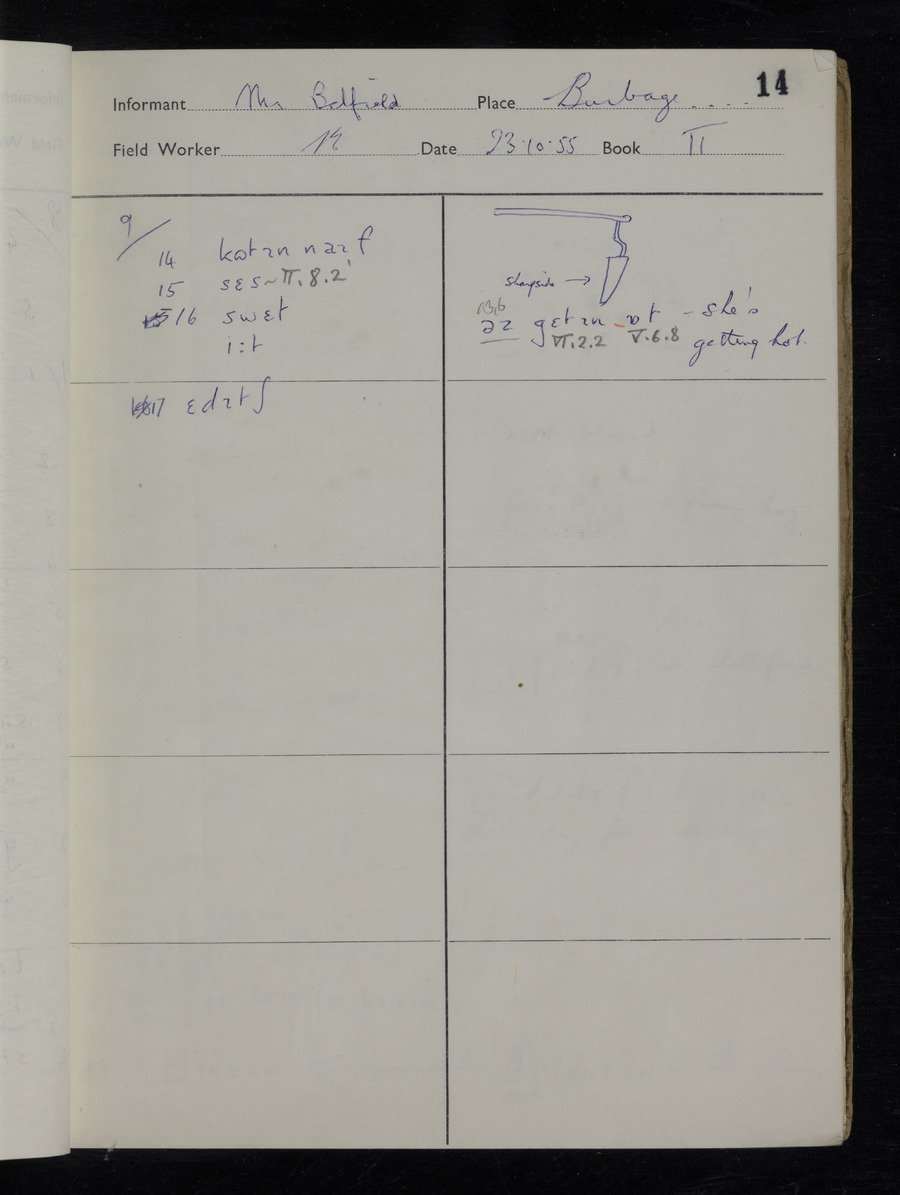 14
Informant Mr Bedfield Place Burbage
Field Worker Date 23·10·55 Book II
9/
14 kətɪn naɪf
15 sɛs~ VI.8.2
16 swɛt
i:t
17 ɛdɪtʃ
sharpside →
əz gɛtɪn ɒt - she's
VI.2.2 V.6.8 getting hot.